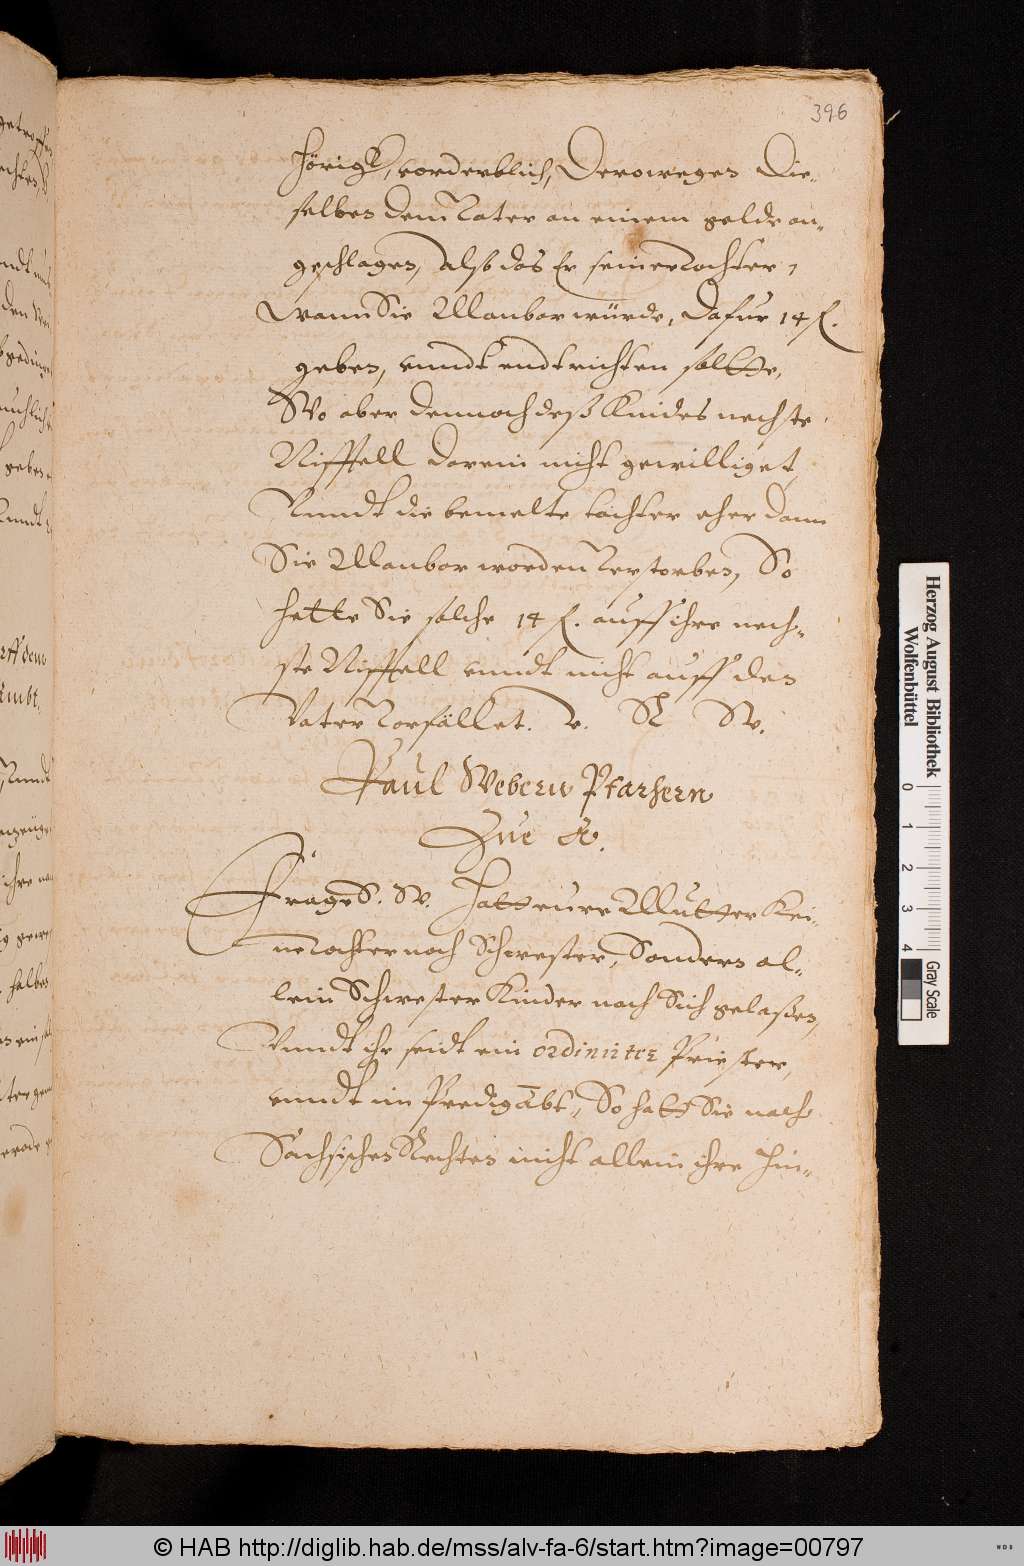 396
hörigk, vorderblich, Derowegen Die-
selben dem Vater an einem gelde an-
geschlagen, Also das Er seiner Tochter,
wann Sie Manbar würde, Dafur 14 fl.
geben, vnndt endtrichten solte,
Wo aber dennoch deß Kindes nechste
Nifftell darein nicht gewilliget,
Vnndt die bemelte tochter eher dann
Sie Manbar worden Verstorben, So
hette Sie solche 14 fl. auff ihre nech-
ste Nifftell vnndt nicht auff den
Vater Vorfället. V. R W.
Paul Webern Pfarhern
Zue A.
Frage S. W. Hatt eure Mutter Kei-
ne Tochter noch Schwester, Sondern al-
lein Schwester Kinder nach Sich gelaßen,
Vnndt ihr seidt ein ordinirter Priester,
vnndt im Predigābt, So hatt Sie nach
Sächsischen Rechten nicht allein ihre Hin-
Herzog August Bibliothek
Wolfenbüttel
0 1 2 3 4
Gray Scale
© HAB http://diglib.hab.de/mss/alv-fa-6/start.htm?image=00797